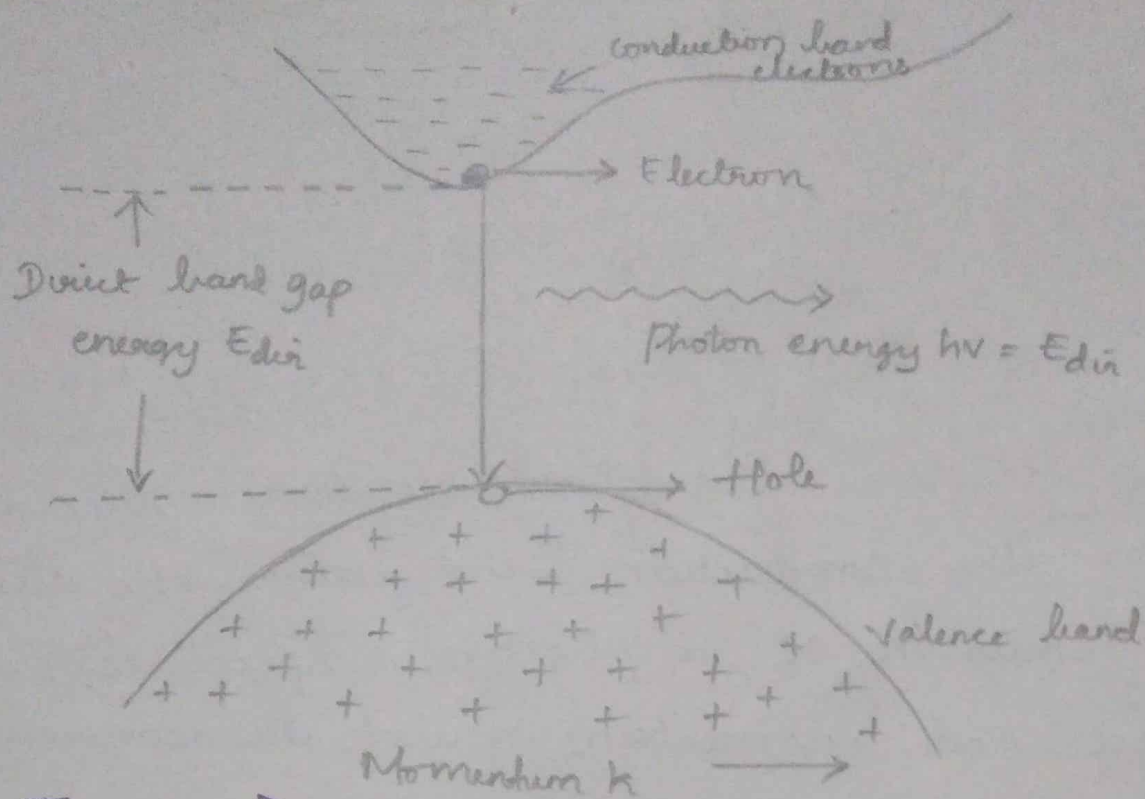 conduction band
electrons
Electron
Direct band gap
energy Edir
Photon energy hν = Edir
Hole
Valence band
Momentum k